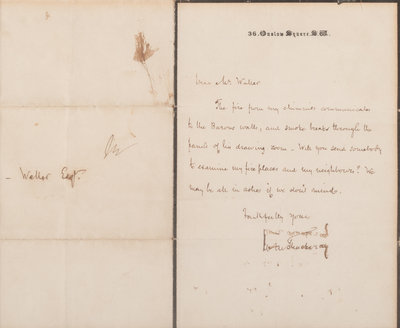 - Waller Esqr.
36. Onslow Square. S.W.
Dear Mr Waller
The fire from my chimnies communicates
to the Barons walls, and smoke breaks through the
panels of his drawing room - Will you send somebody
to examine my fire places and my neighbours? We
may be all in ashes if we don't mind.
Faithfully Yours
W M Thackeray